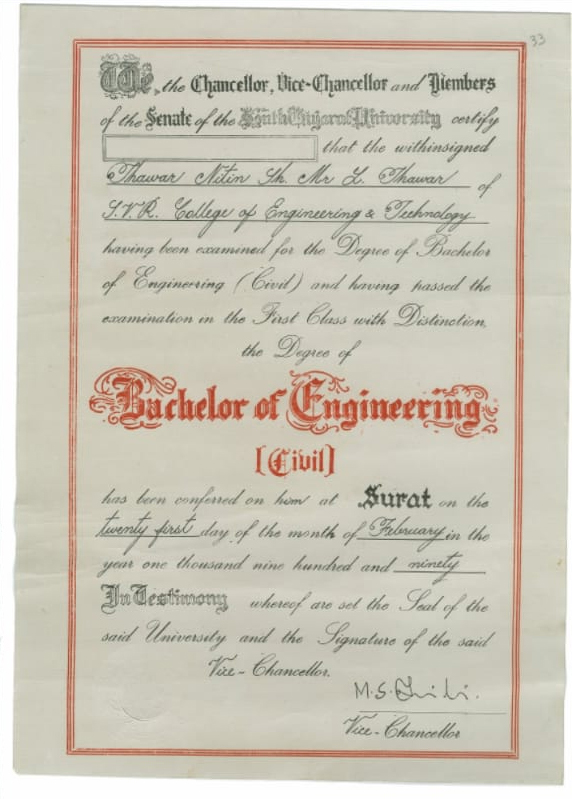 33
We, the Chancellor, Vice-Chancellor and Members
of the Senate of the South Gujarat University certify
that the withinsigned
Thawar Nitin Sh. Mr L. Thawar of
S.V.R. College of Engineering & Technology
having been examined for the Degree of Bachelor
of Engineering (Civil) and having passed the
examination in the First Class with Distinction,
the Degree of
Bachelor of Engineering
[Civil]
has been conferred on him at Surat on the
twenty first day of the month of February in the
year one thousand nine hundred and ninety
In Testimony whereof are set the Seal of the
said University and the Signature of the said
Vice-Chancellor.
M.S.
Vice-Chancellor